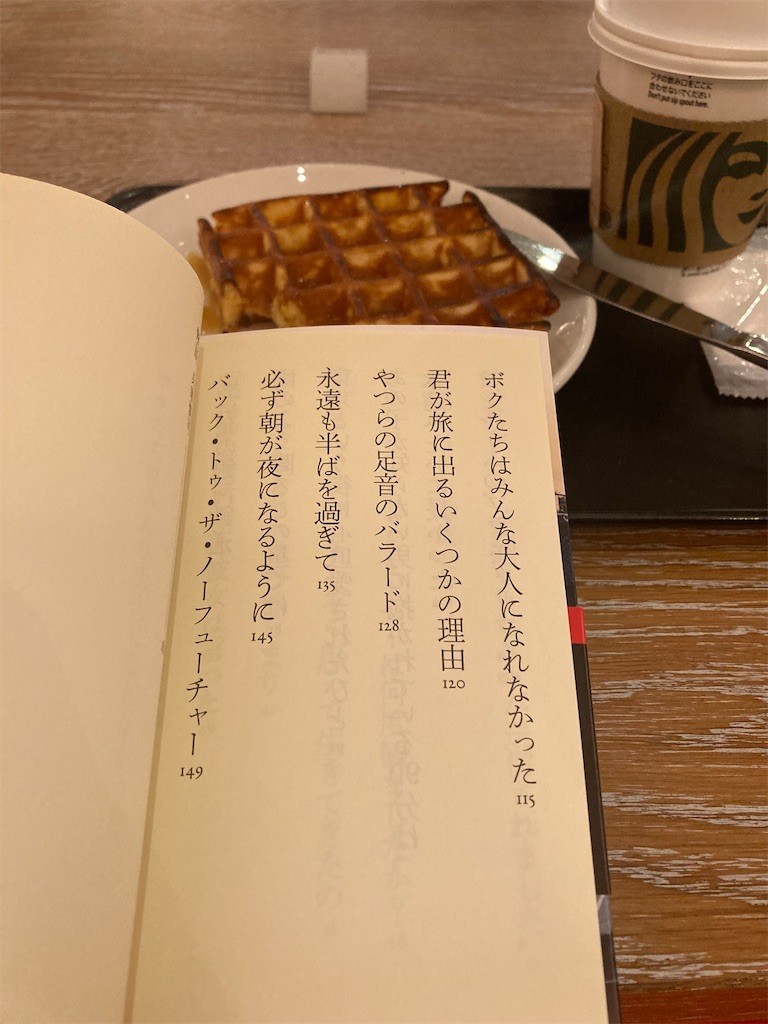 ボクたちはみんな大人になれなかった 115
君が旅に出るいくつかの理由 120
やつらの足音のバラード 128
永遠も半ばを過ぎて 135
必ず朝が夜になるように 145
バック・トゥ・ザ・ノーフューチャー 149
フタの飲み口をここに
合わせないでください
Don't put sip spout here.